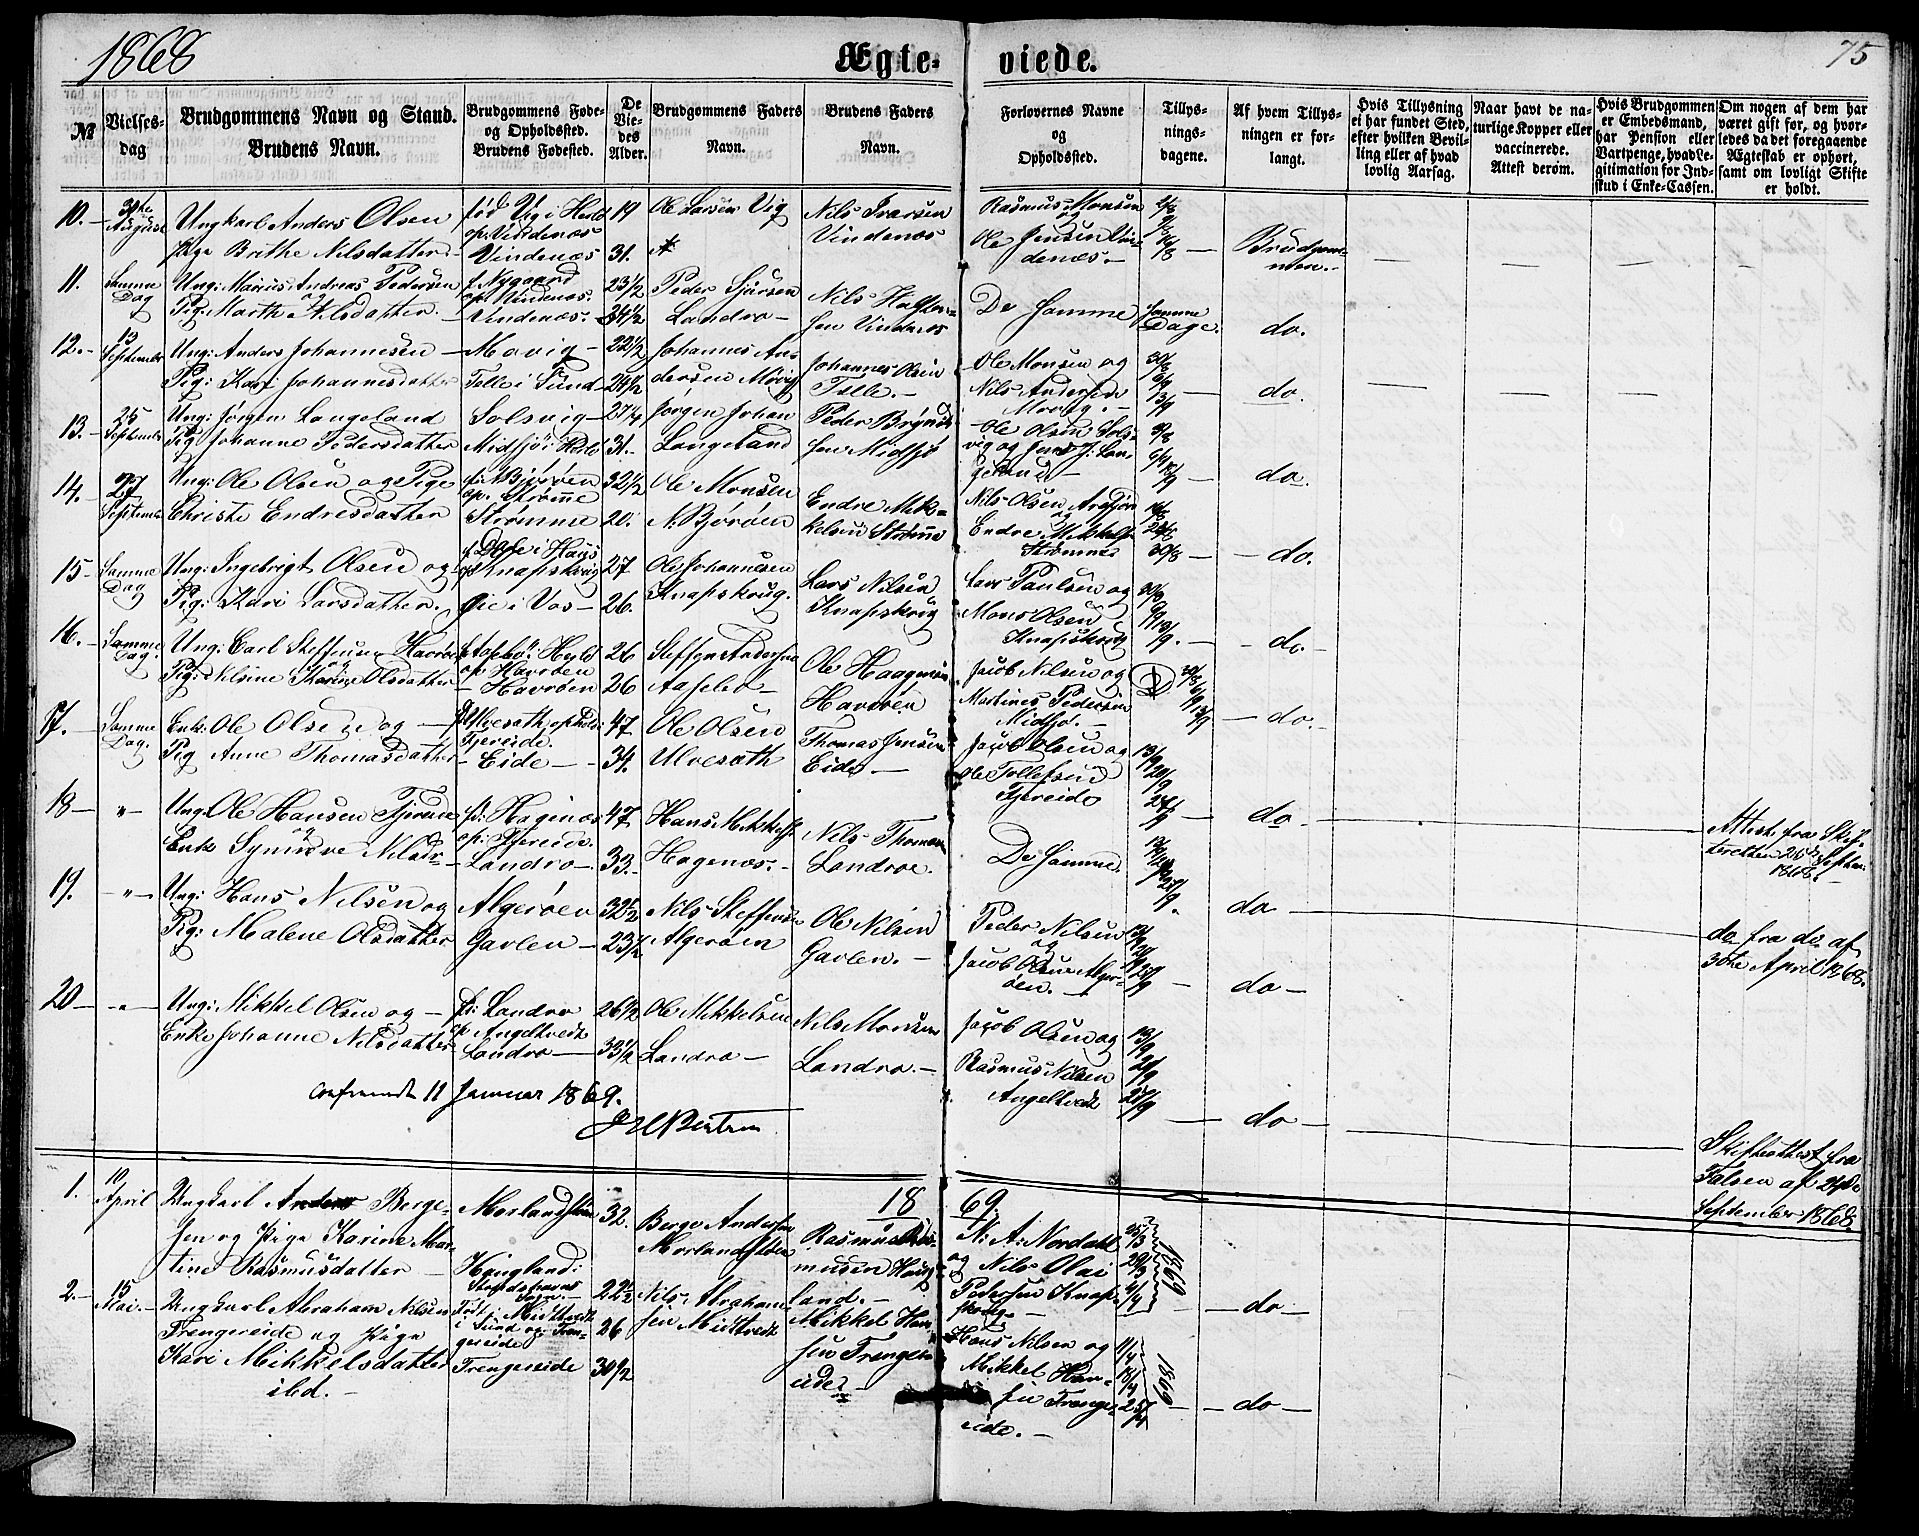 1868
Ægte-
viede.
75
№
Vielses-
dag
Brudgommens Navn og Stand.
Brudens Navn.
Brudgommens Føde-
og Opholdssted.
Brudens Fødested.
De
Vie-
des
Alder.
Brudgommens Faders
Navn.
Brudens Faders
Navn.
Forlovernes Navne
og
Opholdssted.
Tillys-
nings-
dagene.
Af hvem Tillys-
ningen er for-
langt.
Hvis Tillysning
ei har fundet Sted,
efter hvilken Bevil-
ling eller af hvad
lovlig Aarsag.
Naar havt de na-
turlige Kopper eller
vaccinerede.
Attest derom.
Hvis Brudgommen
er Embedsmand,
har Pension eller
Vartpenge, hvad Le-
gitimation for Ind-
skud i Enke-Cassen.
Om nogen af dem har
været gift før, og hvor-
ledes da det foregaaende
Ægteskab er ophørt,
samt om lovligt Skifte
er holdt.
10. 30te August
Ungkarl Anders Olsen
Pige Brithe Nilsdatter
fød Vig i Herlø
op. Vindenæs
Vindenæs
19
31.
Ole Larsen Vig
Nils Ivarsen
Vindenæs
Rasmus Monsen
og
Ole Jensen Vin-
denæs.
Brudgom-
men.
11. Samme Dag
Ung: Marius Andreas Pedersen
og
Pig: Marthe Nilsdatter.
f. Nygaard
op. Vindenæs.
Vindenæs.
23 1/2
34 1/2
Peder Sjursen
Landro
Nils Halstein-
sen Vindenæs
De Samme
Samme
Dage.
do.
12. 13 September
Ung: Anders Johannesen
Pig: Kari Johannesdatter
Movig
Telle i Sund
22 1/2
24 1/2
Johannes An-
dersen Movig
Johannes Olsen
Telle.
Ole Monsen og
Nils Andersen
Movig.
30/8
6/9
13/9
do.
13. 25 September
Ung: Jørgen Langeland
Pig Johanne Pedersdatter
Solsvig
Midsjø i Herlø
27 1/4
31.
Jørgen Johan
Langeland
Peder Brynild-
sen Midsjø
Ole Olsen Sols-
vig og Jens J. Lan-
geland
do.
14. 27 September
Ung: Ole Olsen og Pige
Christi Endresdatter
f. N. Bjorøen
op. Strømme
Strømme
22 1/2
20.
Ole Monsen
N. Bjorøen
Endre Mik-
kelsen Strømme
Nils Olsen
og
Endre Mikkels.
Strømnes
30/8
do.
15 Samme Dag
Ung: Ingebrigt Olsen og
Pig: Kari Larsdatter.
f. Dale i Haus
op. Knapskrug
Øie i Vos
27
26.
Ole Johannesen
Knapskrug.
Lars Nilsen
Knapskrug
Lars Paulsen og
Mons Olsen
Knapskrug
do.
16. Samme Dag.
Ung: Carl Steffensen Havrøe
og
Pig: Nilsine Karine Olsdatter
op. Havrøen
Havrøen
26
26
Steffen Andersen
Aasebø
Ole Haagensen
Havrøen
Jacob Nilsen og
Martines Pedersen
Midsjø.
do.
17. Samme Dag.
Enk: Ole Olsen og
Pig Anne Thomasdatter
f. Ulvesæth ophold:
Fjereide.
Eide
47
34.
Ole Olsen
Ulvesæth
Thomas Jensen
Eide
Jacob Olsen og
Ole Tollefsen
Fjereide
13/9
20/9
27/9
do
Attest fra Skif-
teretten
1868.
18 "
Ung: Ole Hansen Fjereide
og
Enke Synnøve Nilsdr
f: Hagenæs
op: Fjereide
Landro
47
33.
Hans Mikkels.
Hagenæs.
Nils Thomsen
Landroe.
De Samme
do
do fra do. af
30te April 1868.
19. "
Ung: Hans Nilsen og
Pig: Malene Olsdatter
Algerøen
Gavlen
32 1/2
23 1/2
Nils Steffensen
Algerøen
Ole Nilsen
Gavlen.
Peder Nilsen
og
Jacob Olsen Alger-
øen.
do
20 "
Ung: Mikkel Olsen og
Enke Johanne Nilsdatter
f: Landro
op Angeltvedt
Landro
26 1/2
33 1/2
Ole Mikkelsen
Landro
Nils Monsen
Landro.
Jacob Olsen og
Rasmus Nilsen
Angeltvedt
13/9
27/9
do
Skifteattest fra
Falsen af 24de
September 1868.
11 Januar 1869.
1869.
1. 10 April
Ungkarl Anders Berge-
sen og Pige Karine Mar-
tine Rasmusdatter
Morlandstøen
Haugland:
32.
22 1/2
Berge Andersen
Morlandstøen
Rasmus Ras-
musen Haug-
land.
N: A: Nordahl
og Nils Olai
Pedersen Knap-
skrug.
1869
do
2. 15 Mai.
Ungkarl Abraham Nilsen
Trengereide og Pige
Kari Mikkelsdatter
ibd.
Født i Midttvedt
i Sund og. Tren-
gereide
Trengereide
26
30 1/2
Nils Abraham-
sen Midttvedt
Mikkel Han-
sen Trenger-
eide
Hans Nilsen og
Mikkel Han-
sen Trenge-
reide.
11/4
18/4
25/4
1869
do